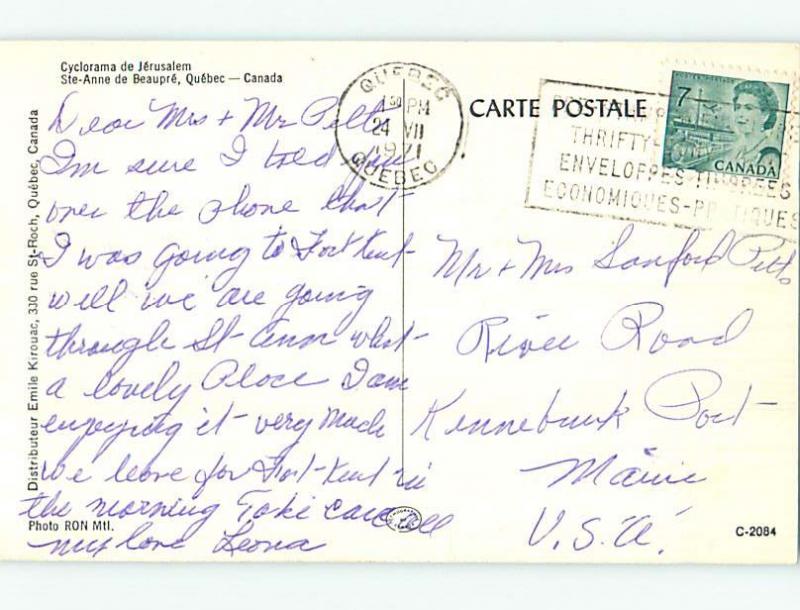 Cyclorama de Jérusalem
Ste-Anne de Beaupré, Québec — Canada
Dear Mrs + Mr Pitts
I'm sure I toed you
over the phone that
I was going to Fort Kent
well we are going
through St Ann what
a lovely Place I am
enjoying it very much
We leave for Fort-Kent in
the morning Take care
my love Leona
Distributeur Emile Kirouac, 330 rue St-Roch, Québec, Canada
Photo RON Mtl.
QUEBEC
1 30 PM
24 VII
1971
QUEBEC
CARTE POSTALE
THRIFTY-
ENVELOPPES-TIMBREES
ECONOMIQUES-PRATIQUES
7
CANADA
Mr + Mrs Sanford Pitts
River Road
Kennebunk Port
Maine
U.S.A.
C-2084